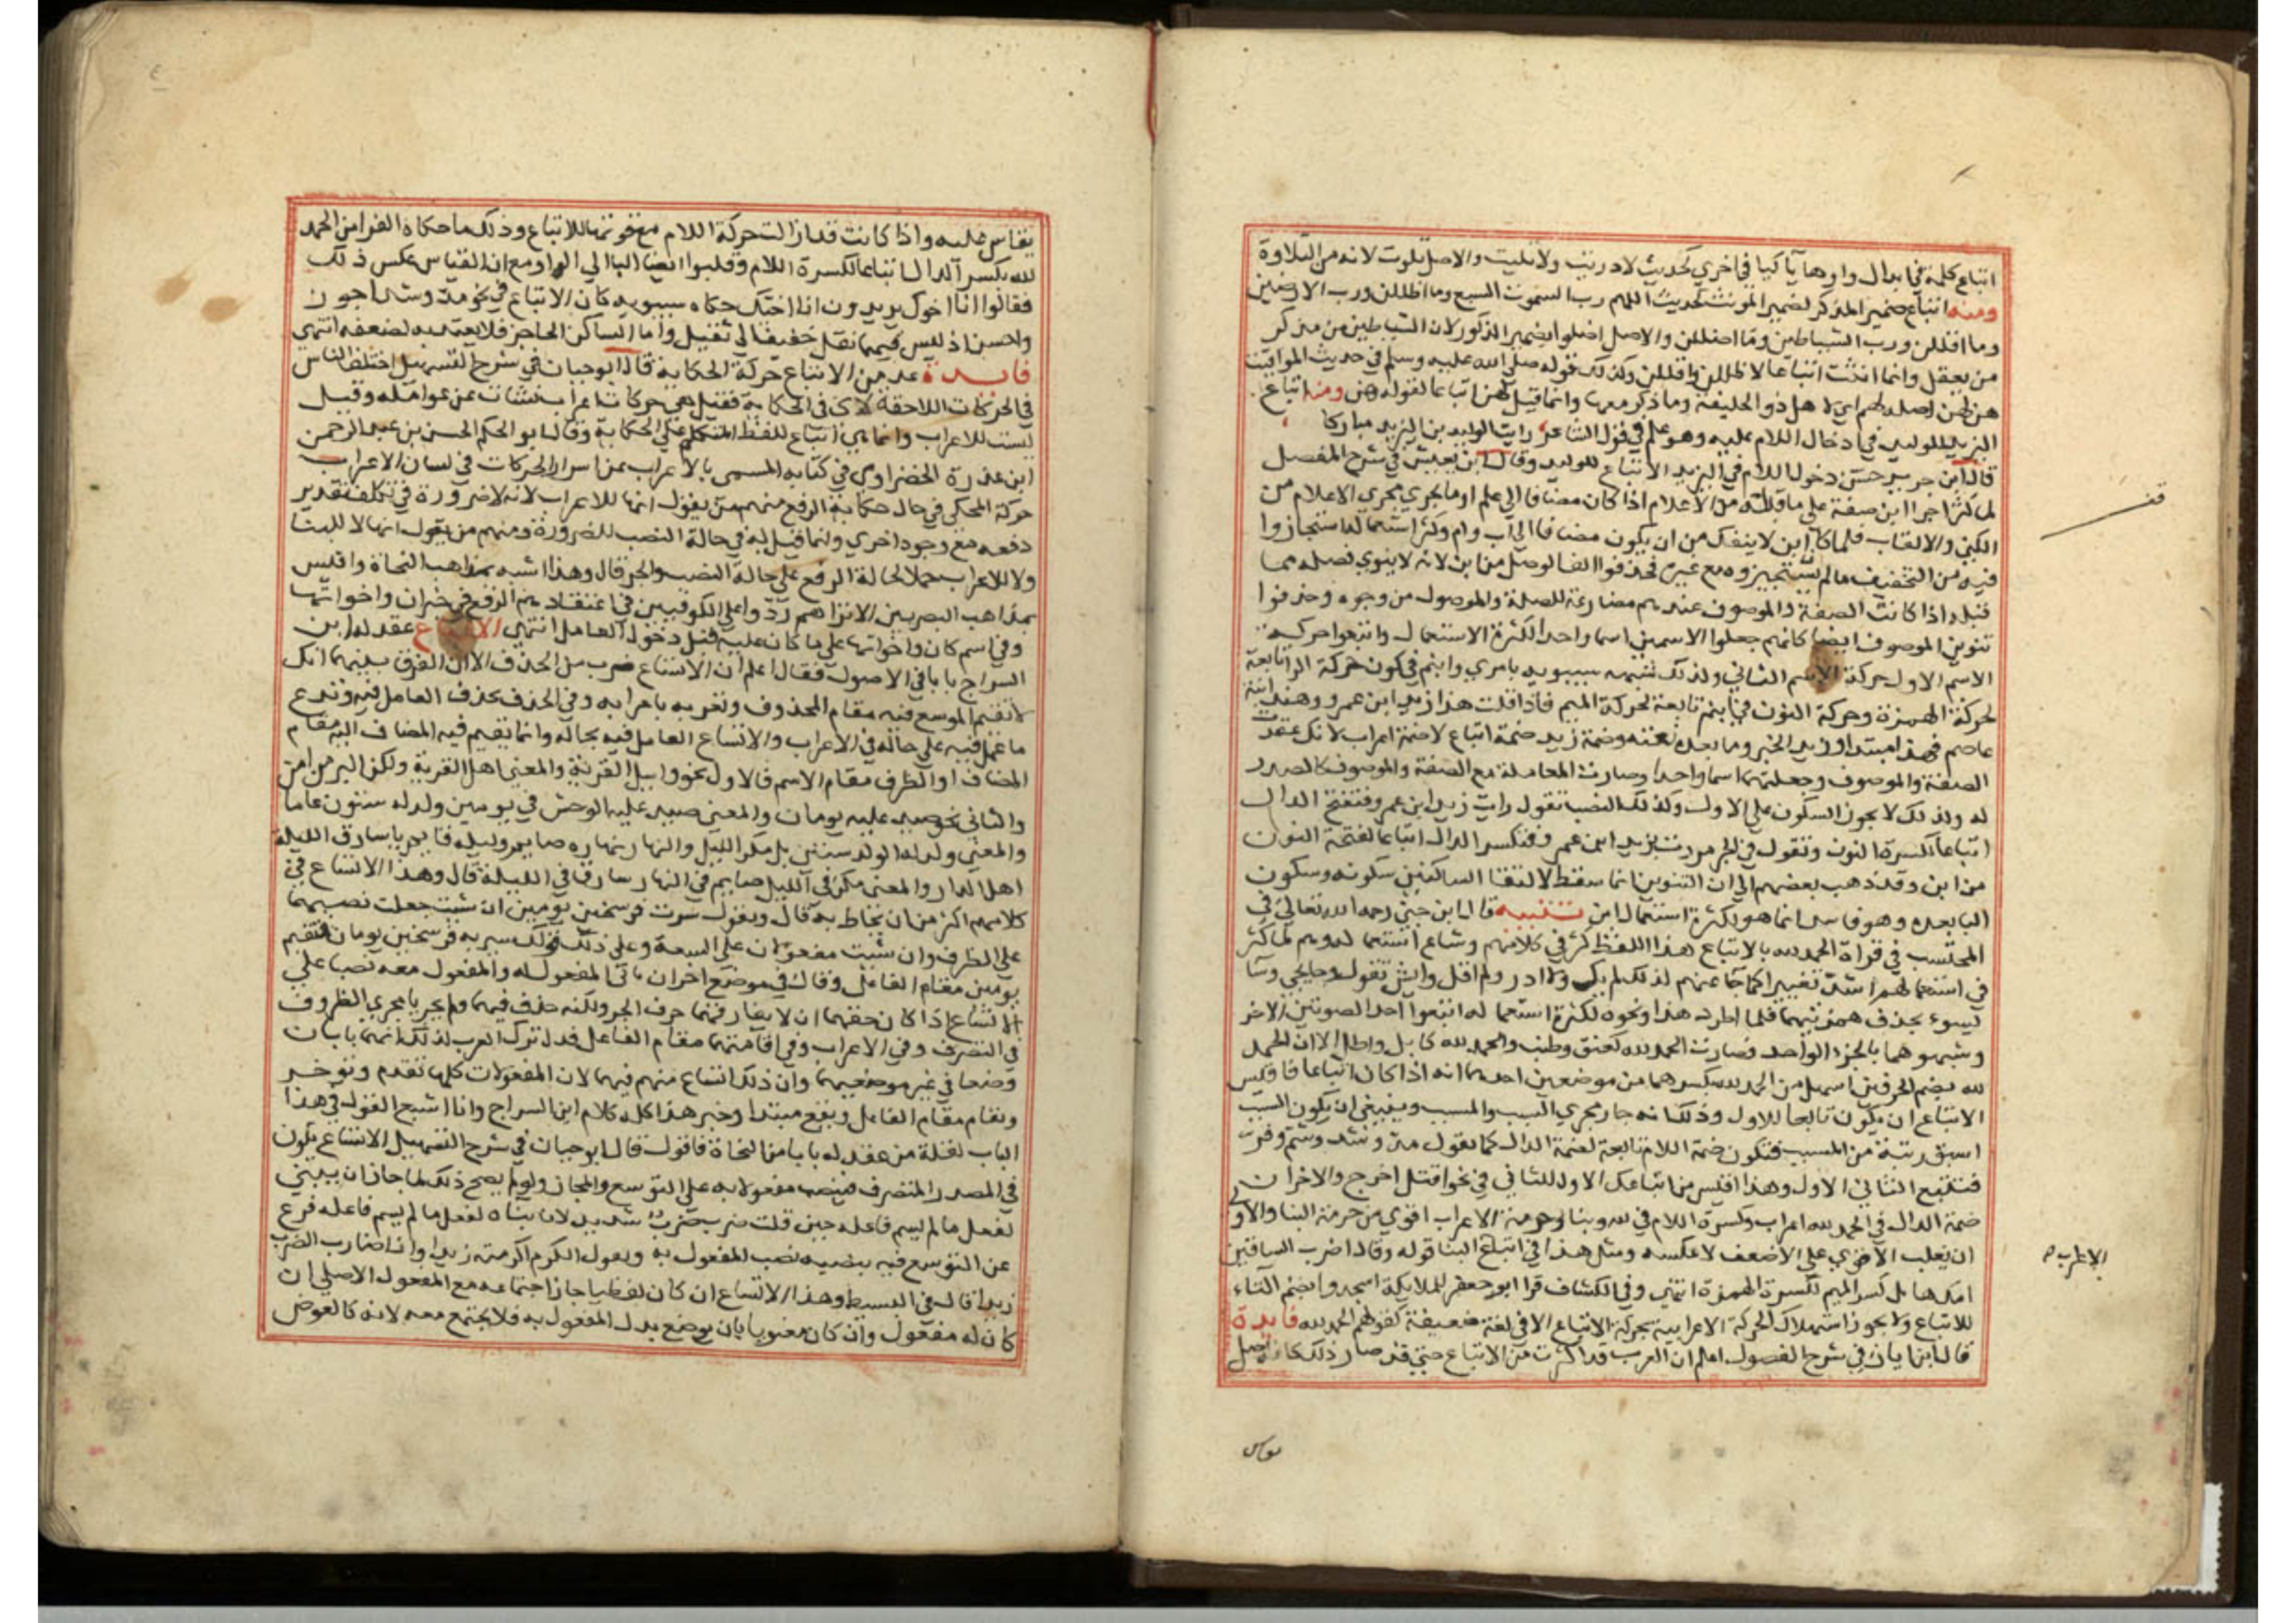 اتباع كلمة في ابدال واوها يآ كيا في اخري كحديث لا دريت ولا تليت والاصل تلوت لانه من التلاوة
ومنه اتباع ضمير المذكر لضمير المونث كحديث اللهم رب السموت السبع وما اظللن ورب الارضين
وما اقللن ورب الشياطين وما اضللن والاصل اضلوا بضمير الذكور لان الشياطين من مذكر
من يعقل وانما انث اتباعا لاظللن واقللن وكذلك قوله صلى الله عليه وسلم في حديث المواقيت
هن لهن اصله لهم اي لاهل ذو الحليفة وما ذكر معها وانما قيل لهن اتباعا لقوله هن ومنه اتباع
اليزيد للوليد في ادخال اللام عليه وهو علم في قول الشاعر رايت الوليد بن اليزيد مباركا
قال ابن جرير حسن دخول اللام في اليزيد الاتباع للوليد وقال ابن يعيش في شرح المفصل
لما كثر اجرا ابن صفة على ما قبله من الاعلام اذا كان مضافا الى علم او ما يجري مجري الاعلام من
الكني والالقاب فلما كان ابن لا ينفك من ان يكون مضافا الى اب وام وكثر استعماله استجازوا
فيه من التخفيف ما لم يستجيزوه مع غيره فحذفوا الف الوصل من ابن لانه لا ينوي فصله مما
قبله اذا كانت الصفة والموصوف عندهم مضارعة للصلة والموصول من وجوه وحذفوا
تنوين الموصوف ايضا كانهم جعلوا الاسمين اسما واحدا لكثرة الاستعمال واتبعوا حركة
الاسم الاول حركة الاسم الثاني ولذلك شبهه سيبويه بامري وابنم في كون حركة الرا تابعة
لحركة الهمزة وحركة النون في ابنم تابعة لحركة الميم فاذا قلت هذا زيد ابن عمرو وهند ابنة
عاصم فهذا مبتدا وزيد الخبر وما بعده نعته وضمة زيد ضمة اتباع لا ضمة اعراب لانك عقدت
الصفة والموصوف وجعلتهما اسما واحدا وصارت المعاملة مع الصفة والموصوف كالصدر
له ولذلك لا يجوز السكون على الاول وكذلك النصب تقول رايت زيد ابن عمرو فتفتح الدال
اتباعا لكسرة النون وتقول في الجر مررت بزيد ابن عمرو فتكسر الدال اتباعا لفتحة النون
من ابن وقد ذهب بعضهم الى ان التنوين انما سقط لالتقا الساكنين سكونه وسكون
البا بعده وهو فاسد انما هو لكثرة استعمال ابن تنبيه قال ابن جني رحمه الله تعالى في
المحتسب في قراة الحمد لله بالاتباع هذا اللفظ كثر في كلامهم وشاع استعماله وهم لما كثر
في استعمالهم اشد تغييرا كما جا عنهم لذلك لم يك ولا ادر ولم اقل وايش تقول وجا يجي وسا
يسوء بحذف همزتيهما فلما اطرد هذا ونحوه لكثرة استعماله اتبعوا احد الصوتين الاخر
وشبهوهما بالجزء الواحد فصارت الحمد لله كعنق وطنب والحمد لله كابل واطل الا ان الحمد
لله بضم الحرفين اسهل من الحمد لله بكسرهما من موضعين احدهما انه اذا كان اتباعا فاقيس
الاتباع ان يكون تابعا للاول وذلك انه جار مجري السبب والمسبب وينبغي ان يكون السبب
اسبق رتبة من المسبب فتكون ضمة اللام تابعة لضمة الدال كما تقول مد وشد وشم وفر
فتتبع الثاني الاول وهذا اقيس من اتباعك الاول للثاني في نحو اقتل اخرج والاخر ان
ضمة الدال في الحمد لله اعراب وكسرة اللام في لله بنا وحرمة الاعراب اقوي من حرمة البنا والاولى
ان يغلب الاقوي على الاضعف لا عكسه ومثل هذا في اتباع البنا قوله وقال اضرب الساقين
امك هابل كسر الميم لكسرة الهمزة انتهي وفي الكشاف قرا ابو جعفر للملايكة اسجدوا بضم التاء
للاتباع ولا يجوز استهلاك الحركة الاعرابية بحركة الاتباع الا في لغة ضعيفة كقولهم الحمد لله فايدة
قال ابن اياز في شرح الفصول اعلم ان العرب قد اكثرت من الاتباع حتى قد صار ذلك كانه اصل
الاعراب
يقاس
يقاس عليه واذا كانت قد ازالت حركة اللام مع قوتها للاتباع وذلك ما حكاه الفرا من الحمد
لله بكسر الدال اتباعا لكسرة اللام وقلبوا ايضا اليا الى الواو مع ان القياس عكس ذلك
فقالوا انا اخوك يريدون انا اخيك حكاه سيبويه كان الاتباع في نحو مد وشد اجوز
واحسن اذ ليس فيهما نقل خفيف الى ثقيل واما الساكن الحاجز فلا يعتد به لضعفه انتهي
فايدة عد من الاتباع حركة الحكاية قال ابو حيان في شرح التسهيل اختلف الناس
في الحركات اللاحقة لاي في الحكاية فقيل هي حركات اعراب نشات عن عوامله وقيل
ليست للاعراب وانما هي اتباع للفظ المتكلم علي الحكاية وقال ابو الحكم الحسن بن عبد الرحمن
ابن عذرة الخضراوي في كتابه المسمي بالاعراب عن اسرار الحركات في لسان الاعراب
حركة المحكي في حال حكاية الرفع منهم من يقول انها للاعراب لانه لا ضرورة في تكلف تقدير
دفعه مع وجود اخري وانما قيل به في حالة النصب للضرورة ومنهم من يقول انها لا للبنا
ولا للاعراب حملا لحالة الرفع علي حالة النصب والجر قال وهذا اشبه بمذاهب النحاة واقيس
بمذاهب البصريين الا تراهم ردوا علي الكوفيين في اعتقادهم الرفع في خبر ان واخواتها
وفي اسم كان واخواتها علي ما كان عليه قبل دخول العامل انتهي الاتساع عقد له ابن
السراج بابا في الاصول فقال اعلم ان الاتساع ضرب من الحذف الا ان الفرق بينهما انك
لا تقيم الموسع فيه مقام المحذوف وتعربه باعرابه وفي الحذف تحذف العامل فيه وتدع
ما عمل فيه علي حاله في الاعراب والاتساع العامل فيه بحاله وانما تقيم فيه المضاف اليه مقام
المضاف او الظرف مقام الاسم فالاول نحو واسيل القرية والمعني اهل القرية ولكن البر من امن
والثاني نحو صيد عليه يومان والمعني صيد عليه الوحش في يومين وولد له ستون عاما
والمعني ولد له الولد ستين بل مكر الليل والنهار نهاره صايم وليله قايم يا سارق الليلة
اهل الدار والمعني مكر في الليل صايم في النهار سارق في الليلة قال وهذا الاتساع في
كلامهم اكثر من ان يحاط به قال وتقول سرت فرسخين يومين ان شيت جعلت نصبهما
علي الظرف وان شيت مفعولان علي السعة وعلي ذلك قولك سير به فرسخين يومان فتقيم
يومين مقام الفاعل وقال في موضع اخر ان باتي المفعول له والمفعول معه نصبا علي
الاتساع اذا كان حقهما ان لا يفارقهما حرف الجر ولكنه حذف فيهما ولم يجريا مجري الظروف
في التصرف وفي الاعراب وفي اقامتهما مقام الفاعل فدل ترك العرب لذلك انهما بابان
وضعا في غير موضعيهما وان ذلك اتساع منهم فيهما لان المفعولات كلها تقدم وتوخر
وتقام مقام الفاعل وتقع مبتدا وخبر هذا كله كلام ابن السراج وانا اشبع القول في هذا
الباب لقلة من عقد له بابا من النحاة فاقول قال ابو حيان في شرح التسهيل الاتساع يكون
في المصدر المتصرف فينصب مفعولا به علي التوسع والمجاز ولو لم يصح ذلك لما جاز ان يبني
لفعل ما لم يسم فاعله حين قلت ضرب ضرب شديد لان بناه لفعل ما لم يسم فاعله فرع
عن التوسع فيه بنصبه نصب المفعول به وتقول الكرم اكرمته زيدا وانا ضارب الضرب
زيدا قال في البسيط وهذا الاتساع ان كان لفظيا جاز اجتماعه مع المفعول الاصلي ان
كان له مفعول وان كان معنويا بان يوضع بدل المفعول به فلا يجتمع معه لانه كالعوض